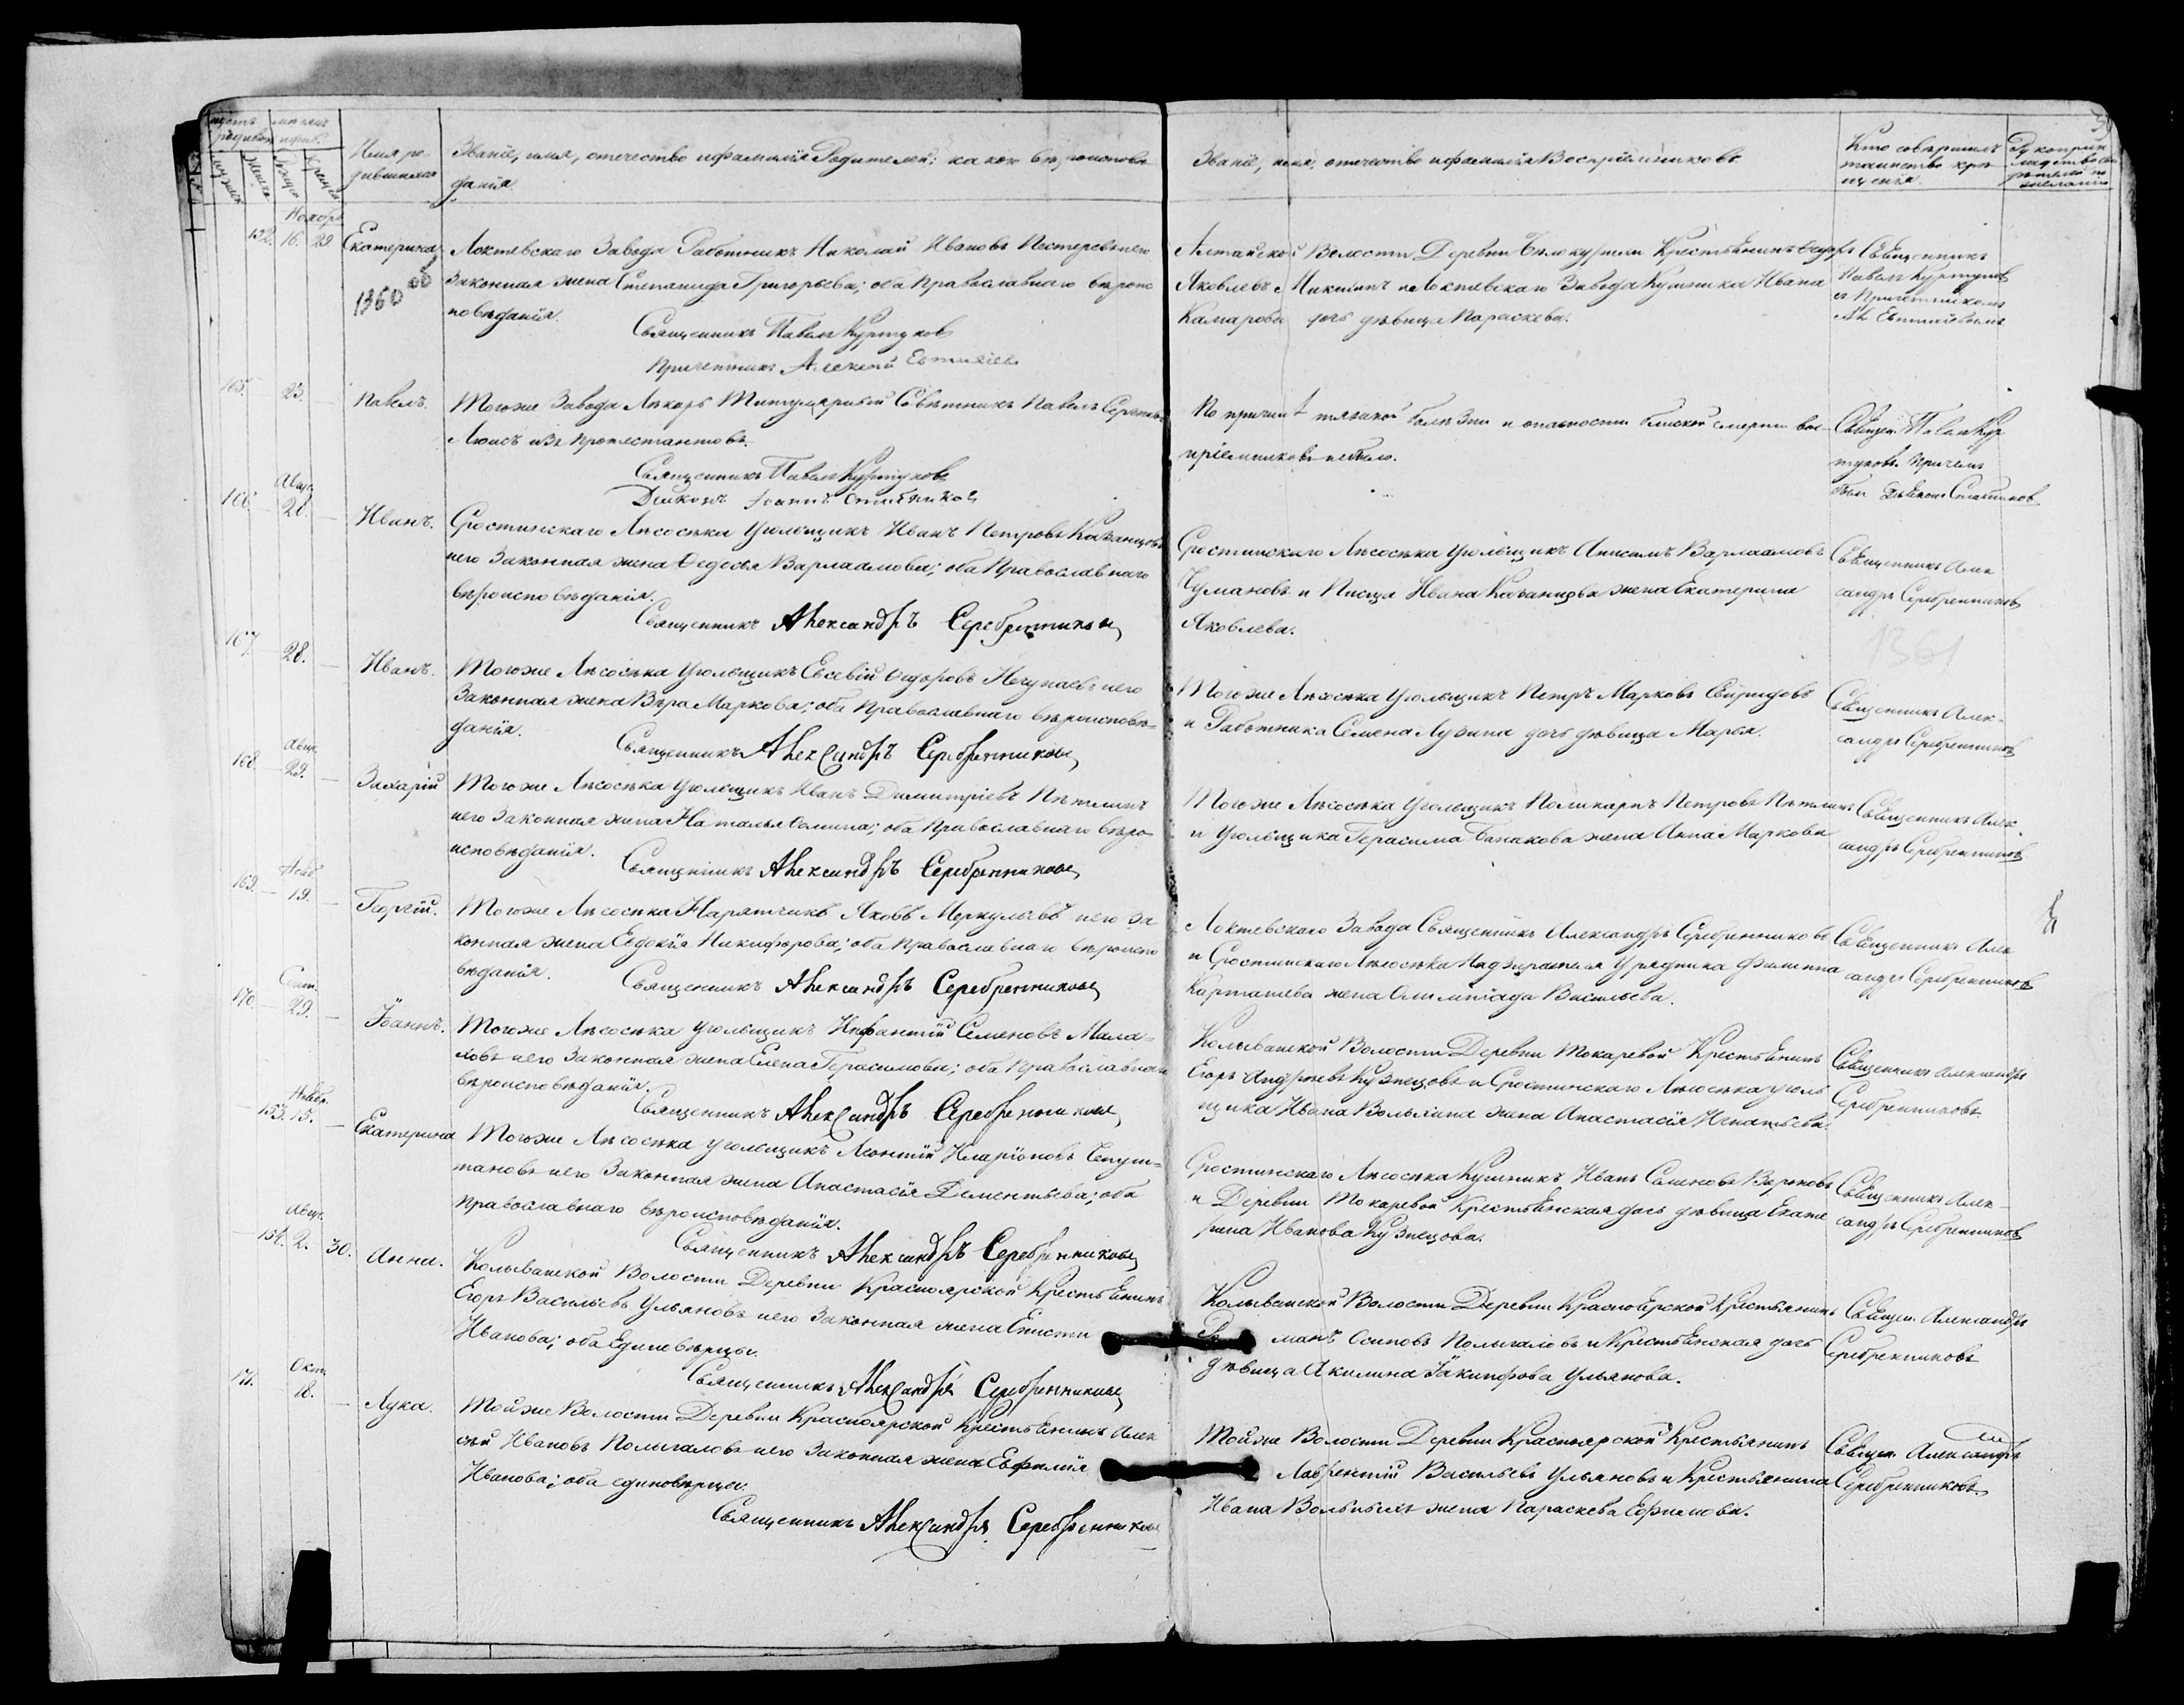 Счетъ родившихся
Мѣсяцъ и день
Имя родившихся
Званіе, имя, отечество и фамилія Родителей; какого вѣроисповѣданія.
Званіе, имя, отечество и фамилія Воспріемниковъ
Кто совершилъ таинство крещенія.
Рукоприкладство свидѣтелей по желанію
Ноябрь
152. 16. 29. Екатерина
1360 об
Локтевскаго Завода Работникъ Николай Ивановъ Пестеревъ и его
законная жена Степанида Григорьева; оба Православнаго вѣроис
повѣданія.
Священникъ Павелъ Куртуковъ
Причетникъ Алексей Евтихіевъ
Алтайской Волости Деревни Белокурихи Крестьянинъ
Яковлевъ Микшинъ и Локтевскаго Завода Кушника Ивана
Камарова дочь дѣвица Параскева.
Священникъ
Павелъ Куртуковъ
съ Причетникомъ
Ал. Евтихіевымъ
165. 23. Павелъ.
Тогоже Завода Лѣкарь Титулярный Совѣтникъ Павелъ Сергѣевъ
Люисъ изъ протестантовъ.
Священникъ Павелъ Куртуковъ
Діаконъ Іоаннъ
По причинѣ тяжкой болѣзни и опасности близкой смерти вос-
пріемниковъ небыло.
Священ. Павелъ Кур
туковъ. Причемъ
былъ Діаконъ
Авгус.
166. 20. Иванъ.
Сростинскаго Лѣсосѣка Угольщикъ Иванъ Петровъ Казанцовъ
и его Законная жена Ѳедосья Варлаамова; оба Православнаго
вѣроисповѣданія.
Священникъ Александръ Серебренниковъ
Сростинскаго Лѣсосѣка Угольщикъ Анисимъ Варлаамовъ
Чумановъ и Писца Ивана Казанцова жена Екатерина
Яковлева.
Священникъ Алек
сандръ Серебренниковъ
1361
167. 28. Иванъ.
Тогоже Лѣсосѣка Угольщикъ Евсевій Ѳедоровъ Нечунаевъ и его
Законная жена Вѣра Маркова; оба Православнаго вѣроисповѣ-
данія.
Священникъ Александръ Серебренниковъ
Тогоже Лѣсосѣка Угольщикъ Петръ Марковъ Свиридовъ
и Работника Семена Лузина дочь дѣвица Марья.
Священникъ Алек-
сандръ Серебренниковъ
Авгус.
168. 29. Захарій
Тогоже Лѣсосѣка Угольщикъ Иванъ Димитріевъ Пѣтелинъ
и его Законная жена Наталья; оба Православнаго вѣро-
исповѣданія.
Священникъ Александръ Серебренниковъ
Тогоже Лѣсосѣка Угольщикъ Поликарпъ Петровъ Пѣтелинъ
и Угольщика Герасима Банакова жена Анна Маркова
Священникъ Алек-
сандръ Серебренниковъ
169. 19. Георгій.
Тогоже Лѣсосѣка Нарятчикъ Яковъ Меркульевъ и его за
конная жена Евдокія Никифорова; оба Православнаго вѣроиспо
вѣданія.
Священникъ Александръ Серебренниковъ
Локтевскаго Завода Священникъ Александръ Серебренниковъ
и Сростинскаго Лѣсосѣка Надзирателя Урядника Филиппа
Карташева жена Олимпіада Васильева.
Священникъ Алек
сандръ Серебренниковъ
Сент.
170. 29. Іоаннъ.
Тогоже Лѣсосѣка Угольщикъ Инфантій Семеновъ Мала-
ховъ и его Законная жена Елена Герасимова; оба Православнаго
вѣроисповѣданія.
Священникъ Александръ Серебренниковъ
Колыванской Волости Деревни Токаревой Крестьянинъ
Егоръ Андреевъ Кузнецовъ и Сростинскаго Лѣсосѣка Уголь
щика Ивана Вольхина жена Анастасія Игнатьева.
Священникъ Александръ
Серебренниковъ
Ноябр.
153. 15. Екатерина
Тогоже Лѣсосѣка Угольщикъ Леонтій Иларіоновъ Чепуш-
тановъ и его Законная жена Анастасія Дементьева; оба
Православнаго вѣроисповѣданія.
Священникъ Александръ Серебренниковъ
Сростинскаго Лѣсосѣка Кушникъ Иванъ Семеновъ
и Деревни Токаревой Крестьянская дочь дѣвица Екате
рина Иванова Кузнецова.
Священникъ Алек-
сандръ Серебренниковъ
Авгус.
154. 2. 30. Анна.
Колыванской Волости Деревни Красноярской Крестьянинъ
Егоръ Васильевъ Ульяновъ и его Законная жена
Иванова; оба Единовѣрцы.
Священникъ Александръ Серебренниковъ
Колыванской Волости Деревни Красноярской Крестьянинъ
манъ Осиповъ Полыгаловъ и Крестьянская дочь
дѣвица Акилина Іакинфова Ульянова.
Священ. Александръ
Серебренниковъ
Окт.
171. 18. Лука.
Тойже Волости Деревни Красноярской Крестьянинъ Алек
сѣй Ивановъ Полыгаловъ и его Законная жена Евфимія
Иванова; оба единовѣрцы.
Священникъ Александръ Серебренниковъ
Тойже Волости Деревни Красноярской Крестьянинъ
Лаврентій Васильевъ Ульяновъ и Крестьянина
Ивана жена Параскева Ефимова.
Священ. Александръ
Серебренниковъ.